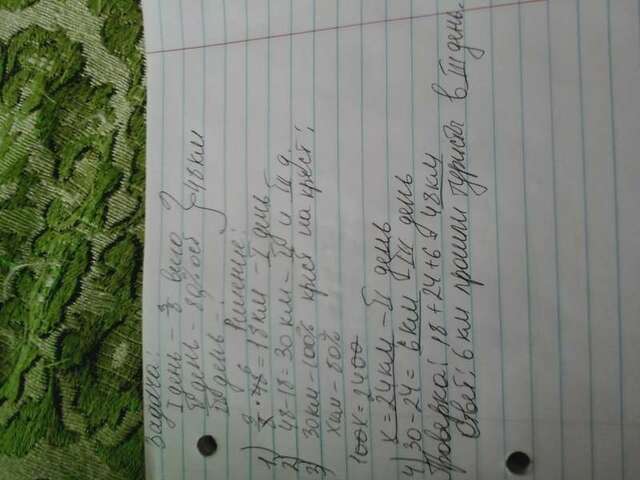 Задача:
I день - 3/8 всего
II день - 80% ост } 48 км
III день - ?
Решение:
1) 3/8 · 48 6 = 18 км - I день
2) 48-18 = 30 км - II и III д.
3) 30 км - 100% крест на крест;
x км - 80%
100x = 2400
x = 24 км - II день
4) 30 - 24 = 6 км - III день
Проверка: 18 + 24 + 6 = 48 км
Ответ: 6 км прошли туристы в III день.